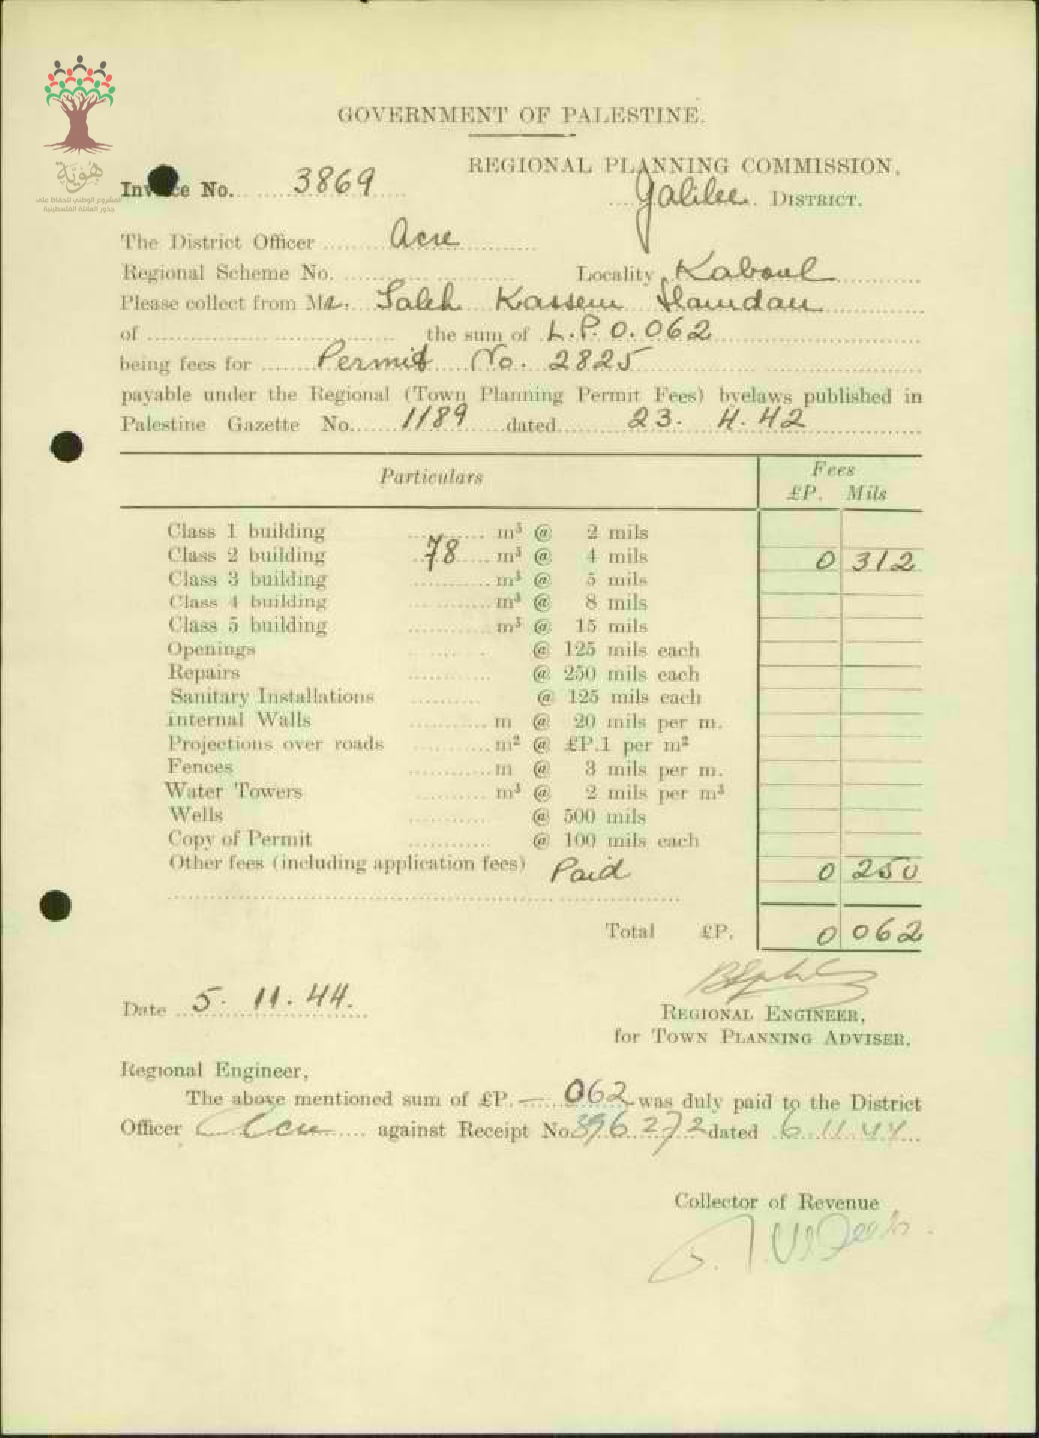 هُوِيَّة
المشروع الوطني للحفاظ على
جذور العائلة الفلسطينية
GOVERNMENT OF PALESTINE.
REGIONAL PLANNING COMMISSION,
Invoice No. 3869
Galilee DISTRICT.
The District Officer Acre
Regional Scheme No. Locality Kaboul
Please collect from Mr. Saleh Kassem Hamdan
of the sum of L.P. 0.062
being fees for Permit No. 2825
payable under the Regional (Town Planning Permit Fees) byelaws published in
Palestine Gazette No. 1189 dated 23. 4. 42
Particulars Fees
£P. Mils
Class 1 building m³ @ 2 mils
Class 2 building 78 m³ @ 4 mils 0 312
Class 3 building m³ @ 5 mils
Class 4 building m³ @ 8 mils
Class 5 building m³ @ 15 mils
Openings @ 125 mils each
Repairs @ 250 mils each
Sanitary Installations @ 125 mils each
Internal Walls m @ 20 mils per m.
Projections over roads m² @ £P.1 per m²
Fences m @ 3 mils per m.
Water Towers m³ @ 2 mils per m³
Wells @ 500 mils
Copy of Permit @ 100 mils each
Other fees (including application fees) Paid 0 250
Total £P. 0 062
Date 5. 11. 44.
REGIONAL ENGINEER,
for TOWN PLANNING ADVISER.
Regional Engineer,
The above mentioned sum of £P. — 062 was duly paid to the District
Officer Acre against Receipt No. 396272 dated 6.11.44
Collector of Revenue